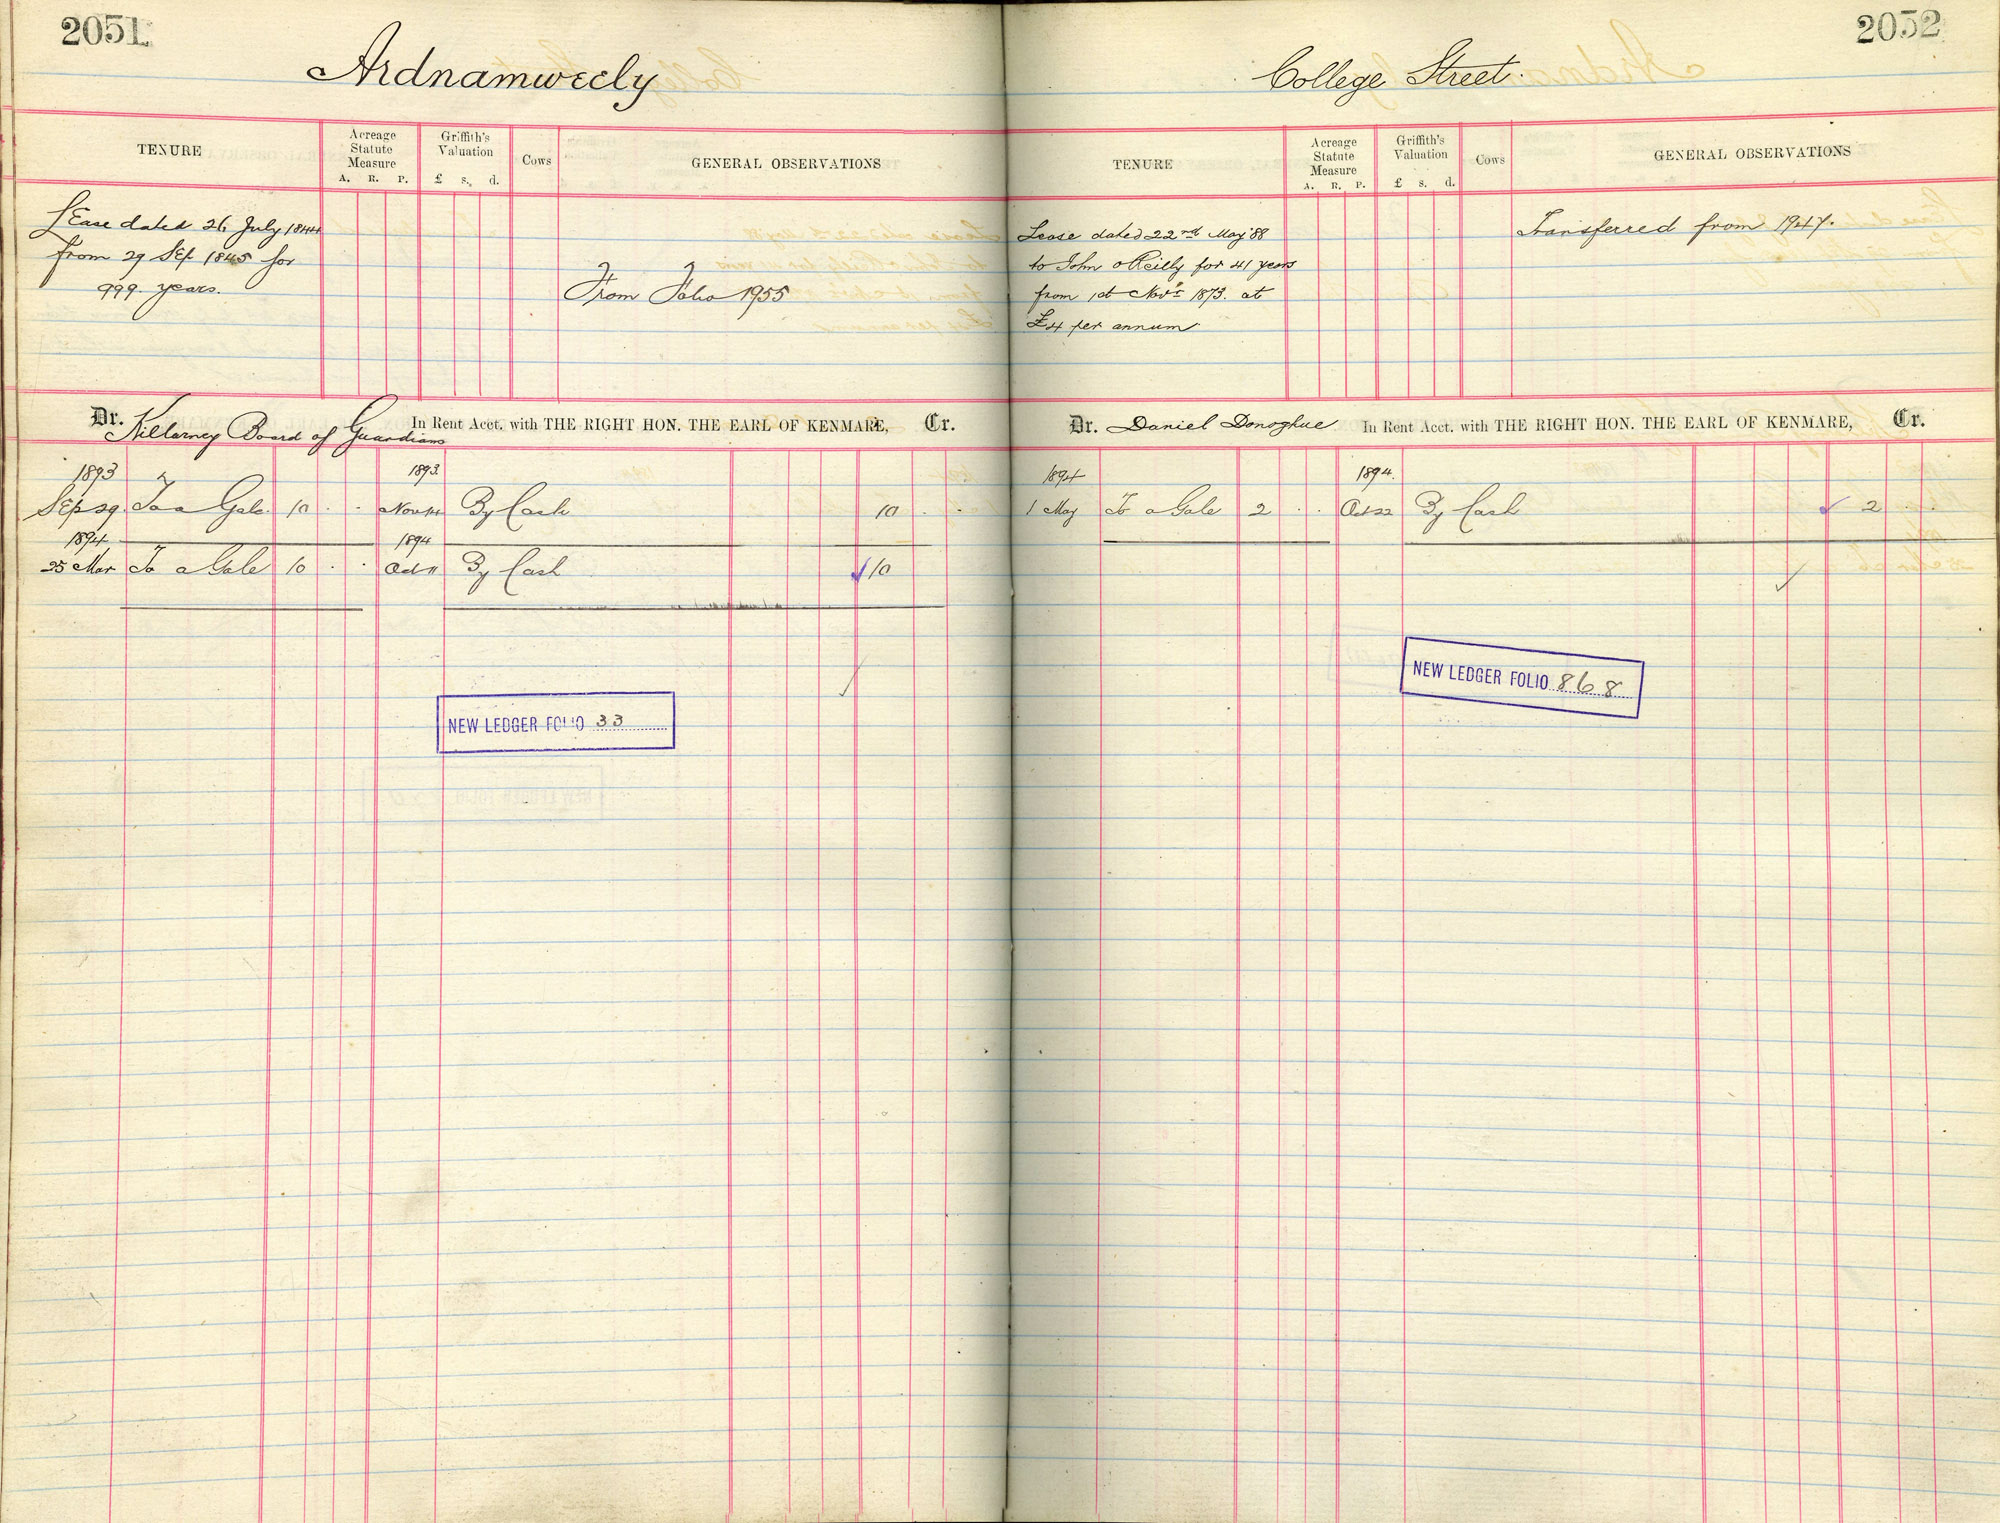 2051
Ardnamweely
TENURE
Acreage
Statute
Measure
A. R. P.
Griffith's
Valuation
£ s. d.
Cows
GENERAL OBSERVATIONS
Lease dated 26 July 1844
from 29 Sep 1845 for
999 years.
From Folio 1955
Dr. Killarney Board of Guardians In Rent Acct. with THE RIGHT HON. THE EARL OF KENMARE, Cr.
1893 1893
Sep 29 To a Gale 10 . . Nov 14 By Cash 10 . .
1894 1894
25 Mar To a Gale 10 . . Oct 11 By Cash 10
NEW LEDGER FOLIO 33
2052
College Street.
TENURE
Acreage
Statute
Measure
A. R. P.
Griffith's
Valuation
£ s. d.
Cows
GENERAL OBSERVATIONS
Lease dated 22nd May '88
to John O'Reilly for 41 years
from 1st Novr 1873. at
£4 per annum
Transferred from 1947.
Dr. Daniel Donoghue In Rent Acct. with THE RIGHT HON. THE EARL OF KENMARE, Cr.
1894 1894.
1 May To a Gale 2 . . Oct 22 By Cash 2 . .
NEW LEDGER FOLIO 868